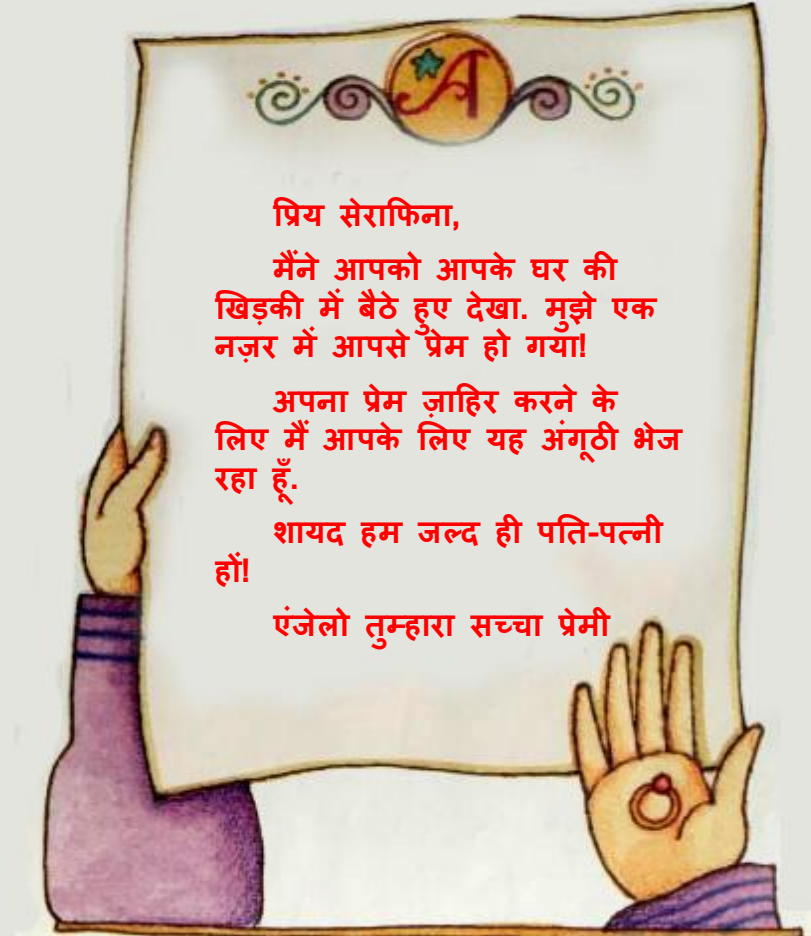 A
प्रिय सेराफिना,
मैंने आपको आपके घर की
खिड़की में बैठे हुए देखा. मुझे एक
नज़र में आपसे प्रेम हो गया!
अपना प्रेम ज़ाहिर करने के
लिए मैं आपके लिए यह अंगूठी भेज
रहा हूँ.
शायद हम जल्द ही पति-पत्नी
हों!
एंजेलो तुम्हारा सच्चा प्रेमी